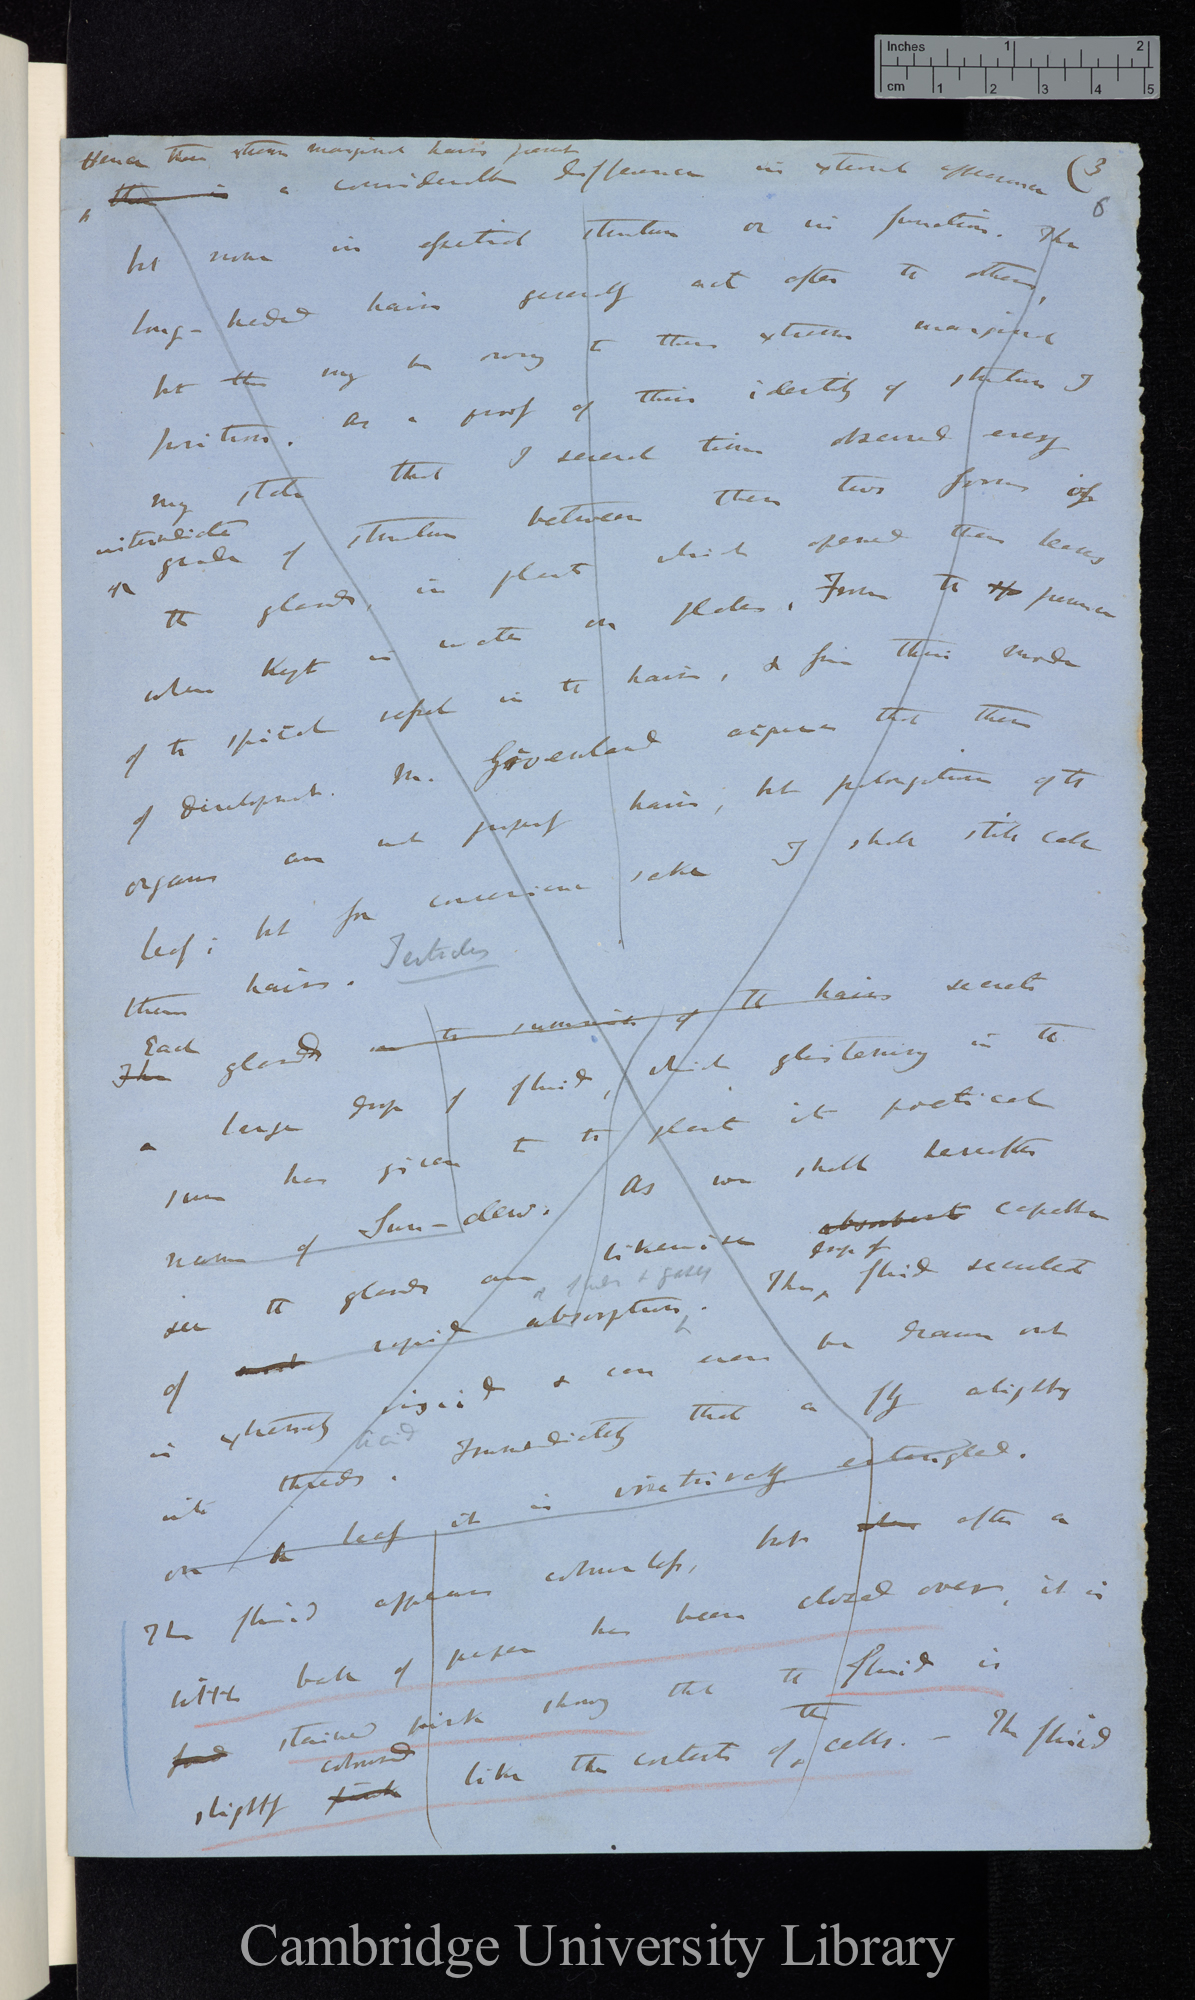 Inches 1 2
cm 1 2 3 4 5
(3
6
Hence these extreme marginal hairs present
there is a considerable difference in external appearance
but none in essential structure or in function. The
long-headed hairs generally act after the others,
but this may be owing to their extreme marginal
position. As a proof of their identity of structure I
may state that I several times observed every
intermediate
grade of structure between these two forms of
the glands, in plants which opened their leaves
when kept in water on plates. From the presence
of the spiral vessel in the hairs, & from their mode
of development. M. Grönland argues that these
organs are not properly hairs, but prolongations of the
leaf; but for convenience sake I shall still call
them hairs. Tentacles
Each
The glands on the summits of the hairs secrete
a large drop of fluid, which glistening in the
sun has given to the plant its poetical
name of Sun-dew. As we shall hereafter
see the glands are likewise absorbent capable
of rapid absorption. The drop of fluid secreted
is extremely viscid & can even be drawn out
acid
into threads. Immediately that a fly alights
on a leaf it is inextricably entangled.
The fluid appears colourless, but when after a
little ball of paper has been closed over, it is
found stained pink showing that the fluid is
coloured the
slightly pink like the contents of cells. — The fluid
Cambridge University Library